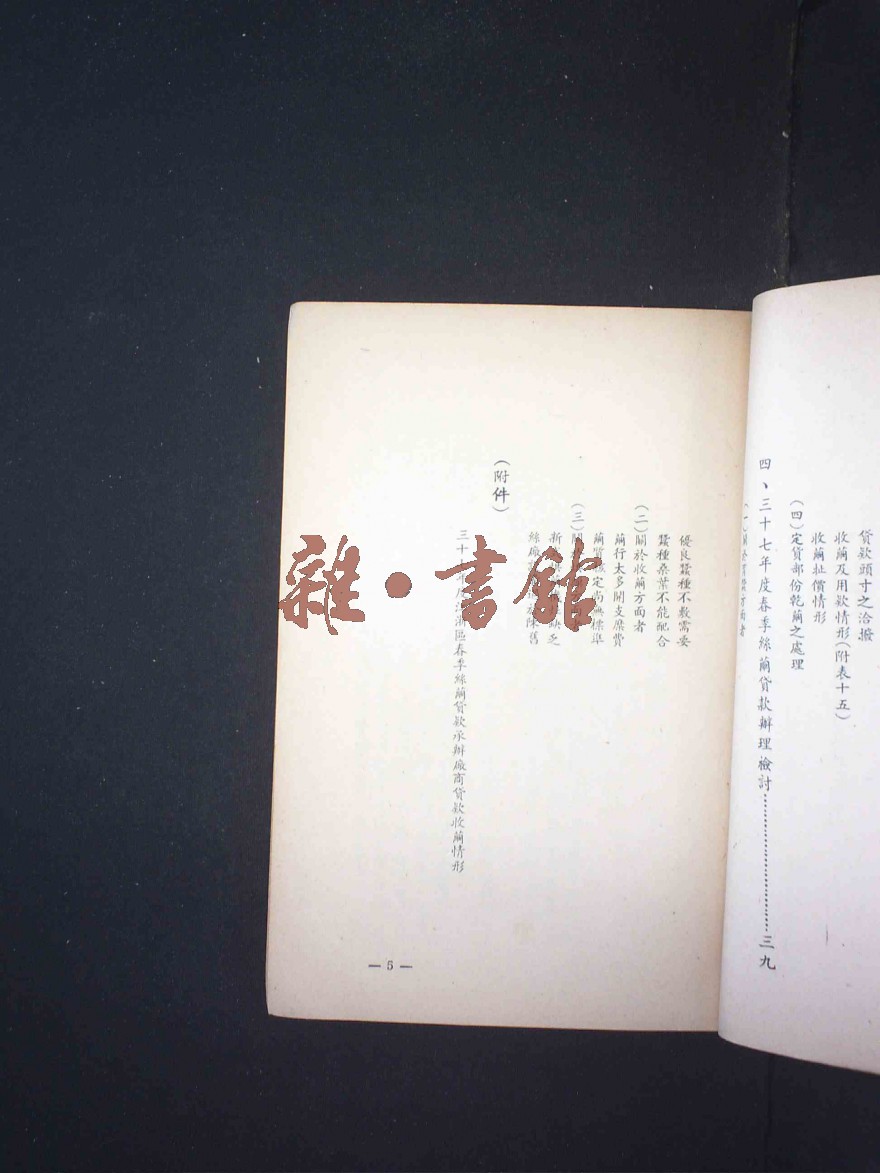 貸款頭寸之洽撥
收繭及用款情形(附表十五)
收繭扯價情形
(四)定貨部份乾繭之處理
四、三十七年度春季絲繭貸款辦理檢討……………………三九
優良蠶種不敷需要
蠶種桑葉不能配合
(二)關於收繭方面者
繭行太多開支糜費
繭質 定尚無標準
(三)
新 缺乏
絲廠 陳舊
(附件)
三十 年度 區春季絲繭貸款承辦廠商貸款收繭情形
— 5 —
雜·書館